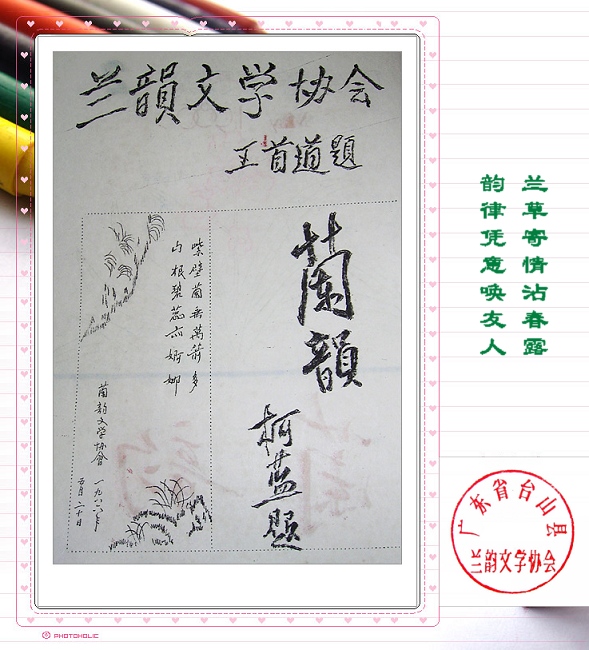 兰韻文学协会
王首道題
蘭韻
柯蓝题
峭壁蘭垂萬箭多
山根碧蕊亦婀娜
蘭韵文学协會
五月二十日
兰草寄情沾春露
韵律凭意唤友人
广东省台山县
兰韵文学协会
PHOTOHOLIC